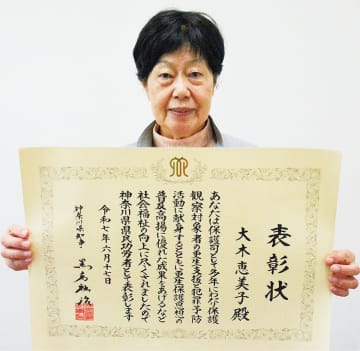 表彰状
大木恵美子殿
あなたは保護司として多年にわたり保護
観察対象者の更生支援や犯罪予防
活動に献身するとともに更生保護思想の
普及高揚に優れた成果をあげるなど
社会福祉の向上に尽くされましたので
神奈川県県民功労者として表彰します
令和七年六月十七日
神奈川県知事 黒岩祐治